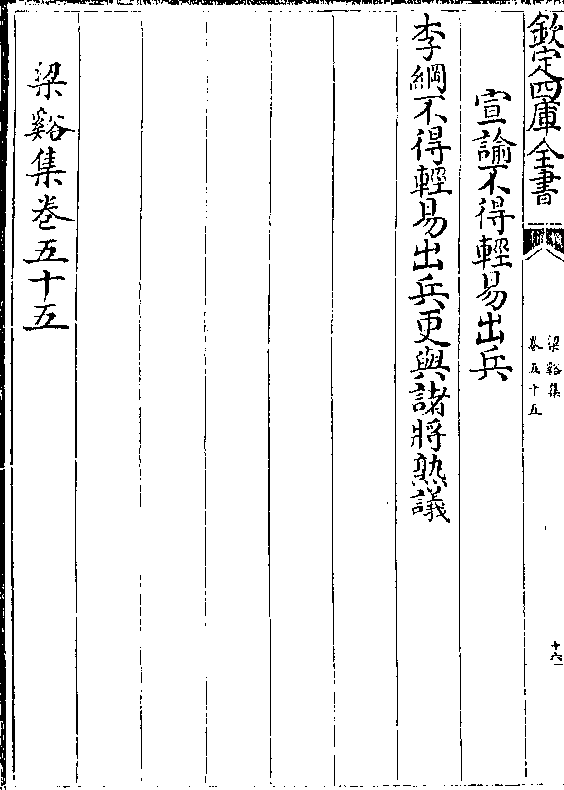 欽定四庫全書
梁谿集
卷五十五
十六
宣諭不得輕易出兵
李綱不得輕易出兵更與諸將熟議
梁谿集卷五十五